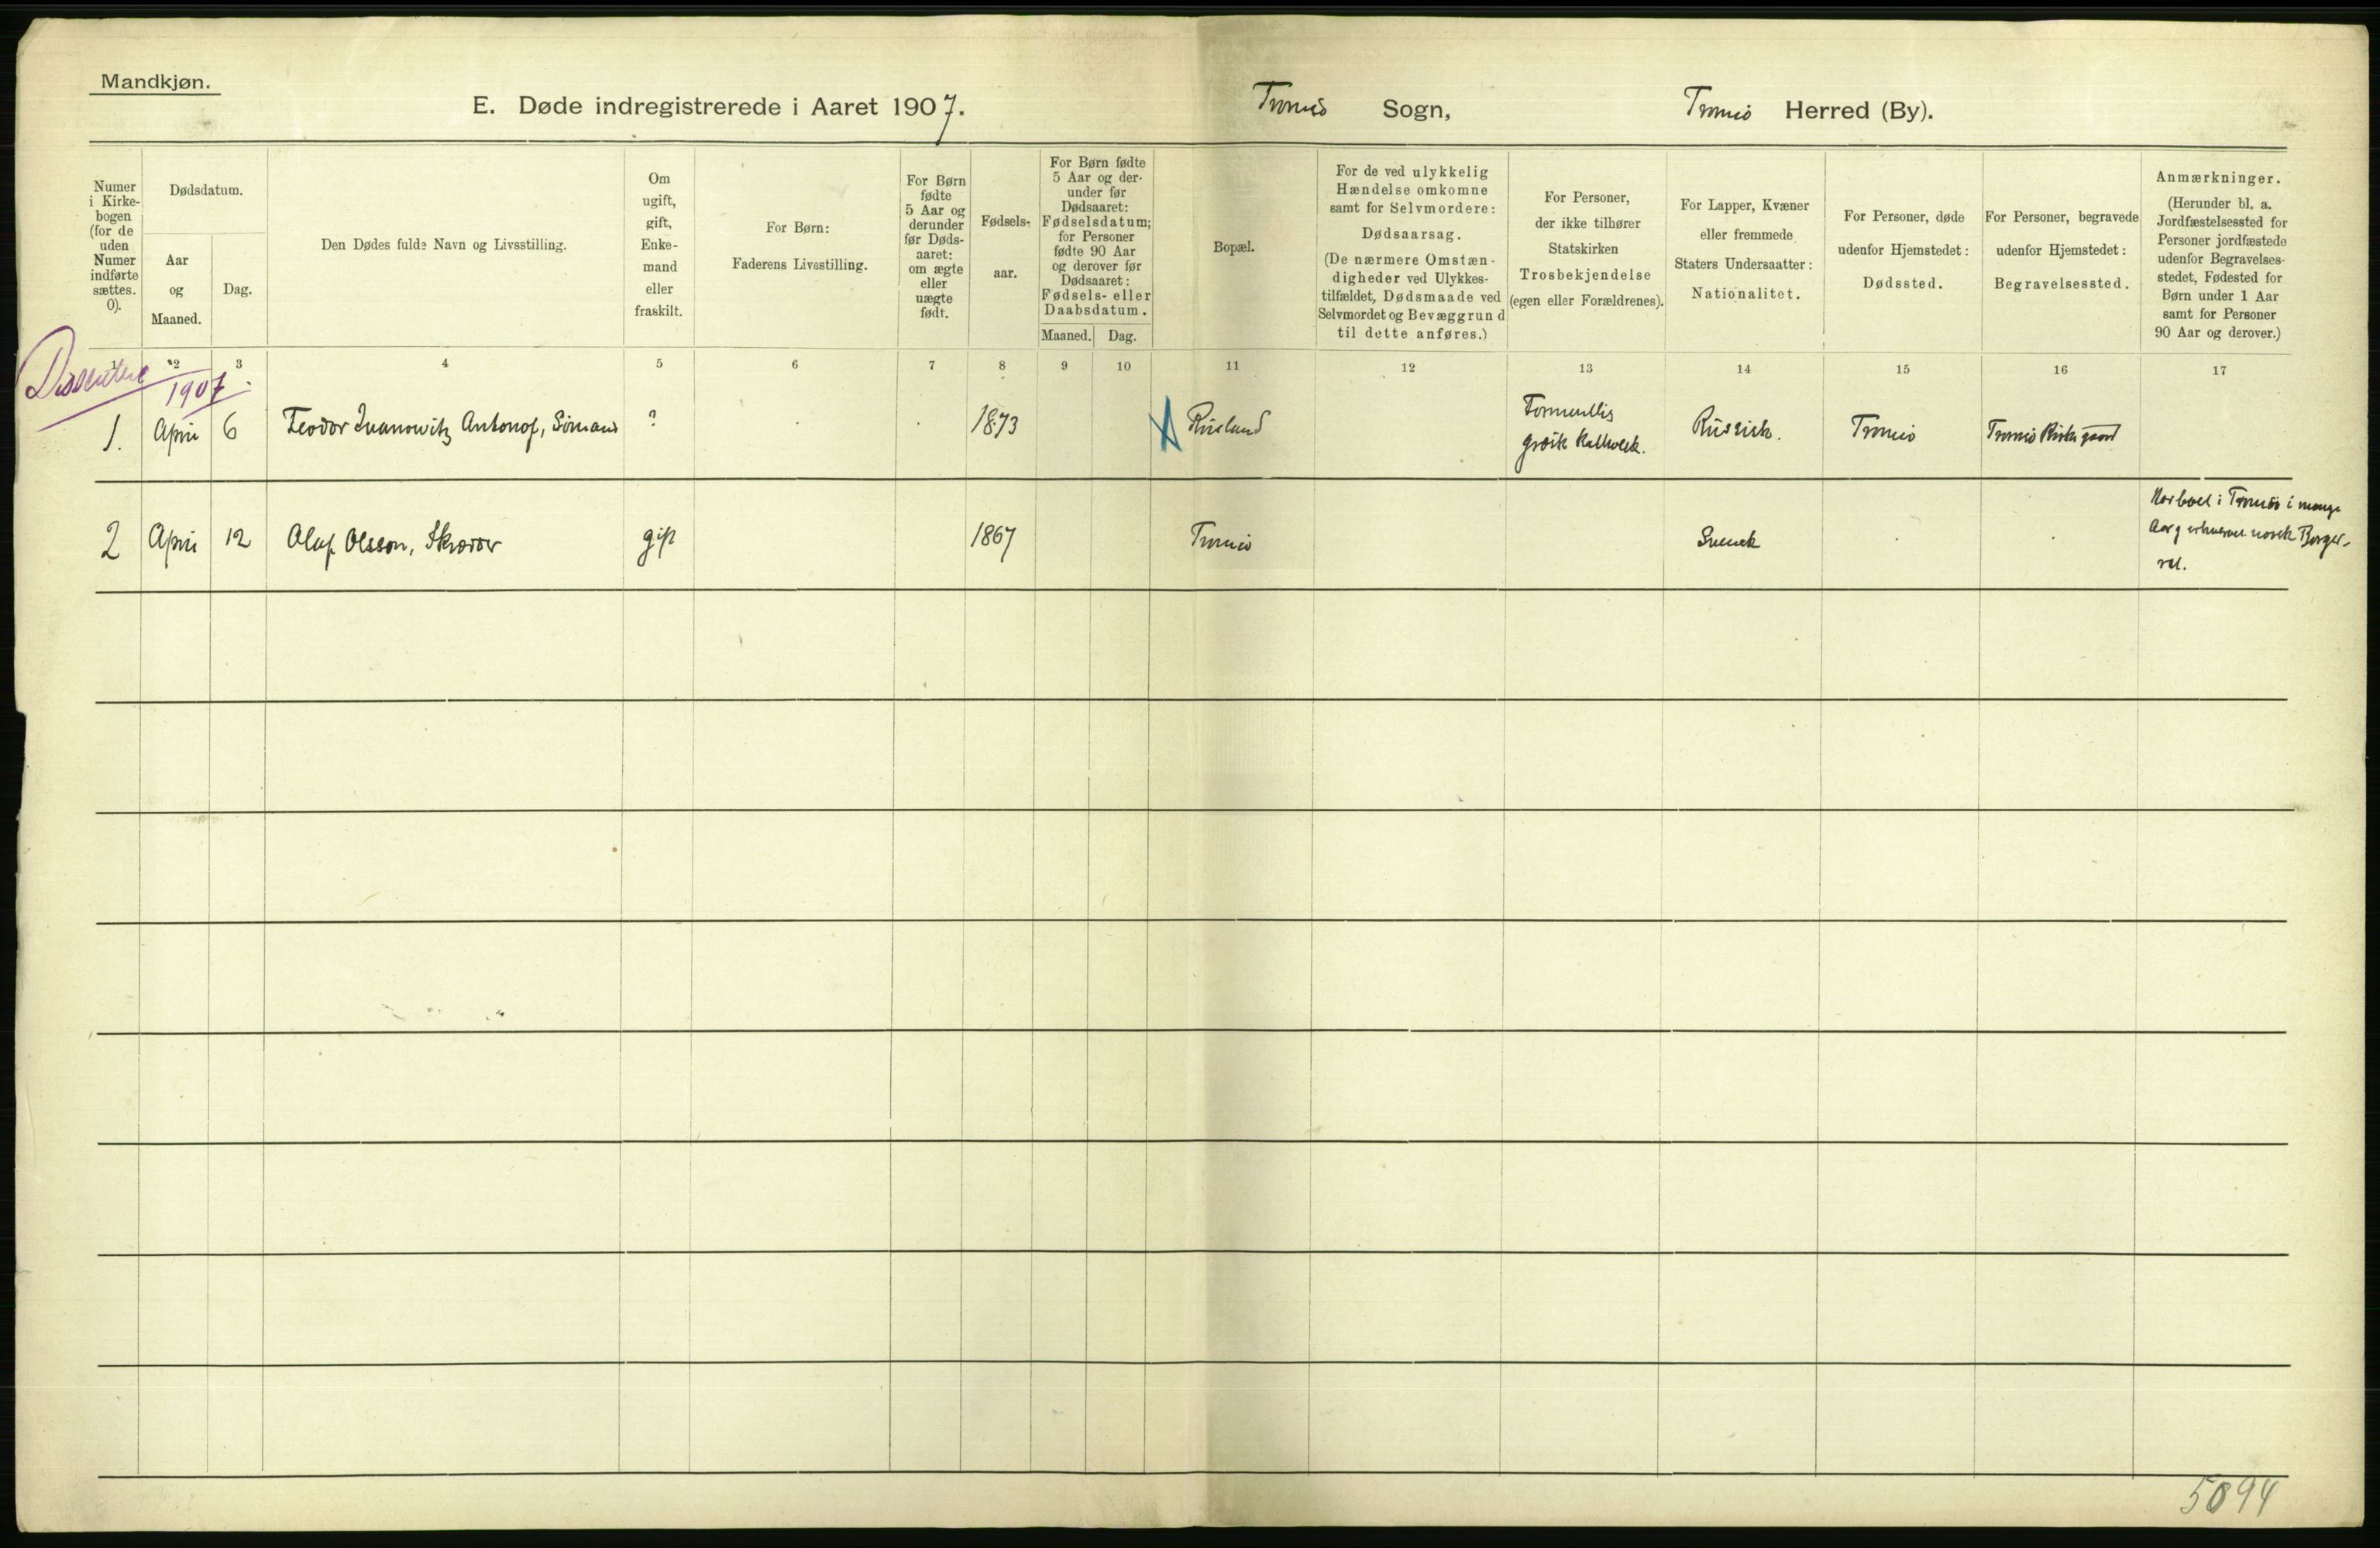 Mandkjøn.
E. Døde indregistrerede i Aaret 1907.
Tromsø Sogn,
Tromsø Herred (By).
Numer
i Kirke-
bogen
(for de
uden
Numer
indførte
sættes.
0).
Dødsdatum.
Aar
og
Maaned.
Dag.
Den Dødes fulde Navn og Livsstilling.
Om
ugift,
gift,
Enke-
mand
eller
fraskilt.
For Børn:
Faderens Livsstilling.
For Børn
fødte
5 Aar og
derunder
før Døds-
aaret:
om ægte
eller
uægte
født.
Fødsels-
aar.
For Børn fødte
5 Aar og der-
under før
Dødsaaret:
Fødselsdatum;
for Personer
fødte 90 Aar
og derover før
Dødsaaret:
Fødsels- eller
Daabsdatum.
Maaned. Dag.
Bopæl.
For de ved ulykkelig
Hændelse omkomne
samt for Selvmordere:
Dødsaarsag.
(De nærmere Omstæn-
digheder ved Ulykkes-
tilfældet, Dødsmaade ved
Selvmordet og Bevæggrund
til dette anføres.)
For Personer,
der ikke tilhører
Statskirken
Trosbekjendelse
(egen eller Forældrenes).
For Lapper, Kvæner
eller fremmede
Staters Undersaatter:
Nationalitet.
For Personer, døde
udenfor Hjemstedet:
Dødssted.
For Personer, begravede
udenfor Hjemstedet:
Begravelsessted.
Anmærkninger.
(Herunder bl. a.
Jordfæstelsessted for
Personer jordfæstede
udenfor Begravelses-
stedet, Fødested for
Børn under 1 Aar
samt for Personer
90 Aar og derover.)
1 2 3 4 5 6 7 8 9 10 11 12 13 14 15 16 17
Dissentere 1907.
1. April 6 Feodor Ivanowitz Antonof, Sømand ? 1873 Rusland Formentlig
græsk katholsk. Russisk. Tromsø Tromsø Kirkegaard
2 April 12 Oluf Olsson, Skræder gift 1867 Tromsø Svensk
Har boet i Tromsø i mange
Aar og erhvervet norsk Borger-
ret.
5094